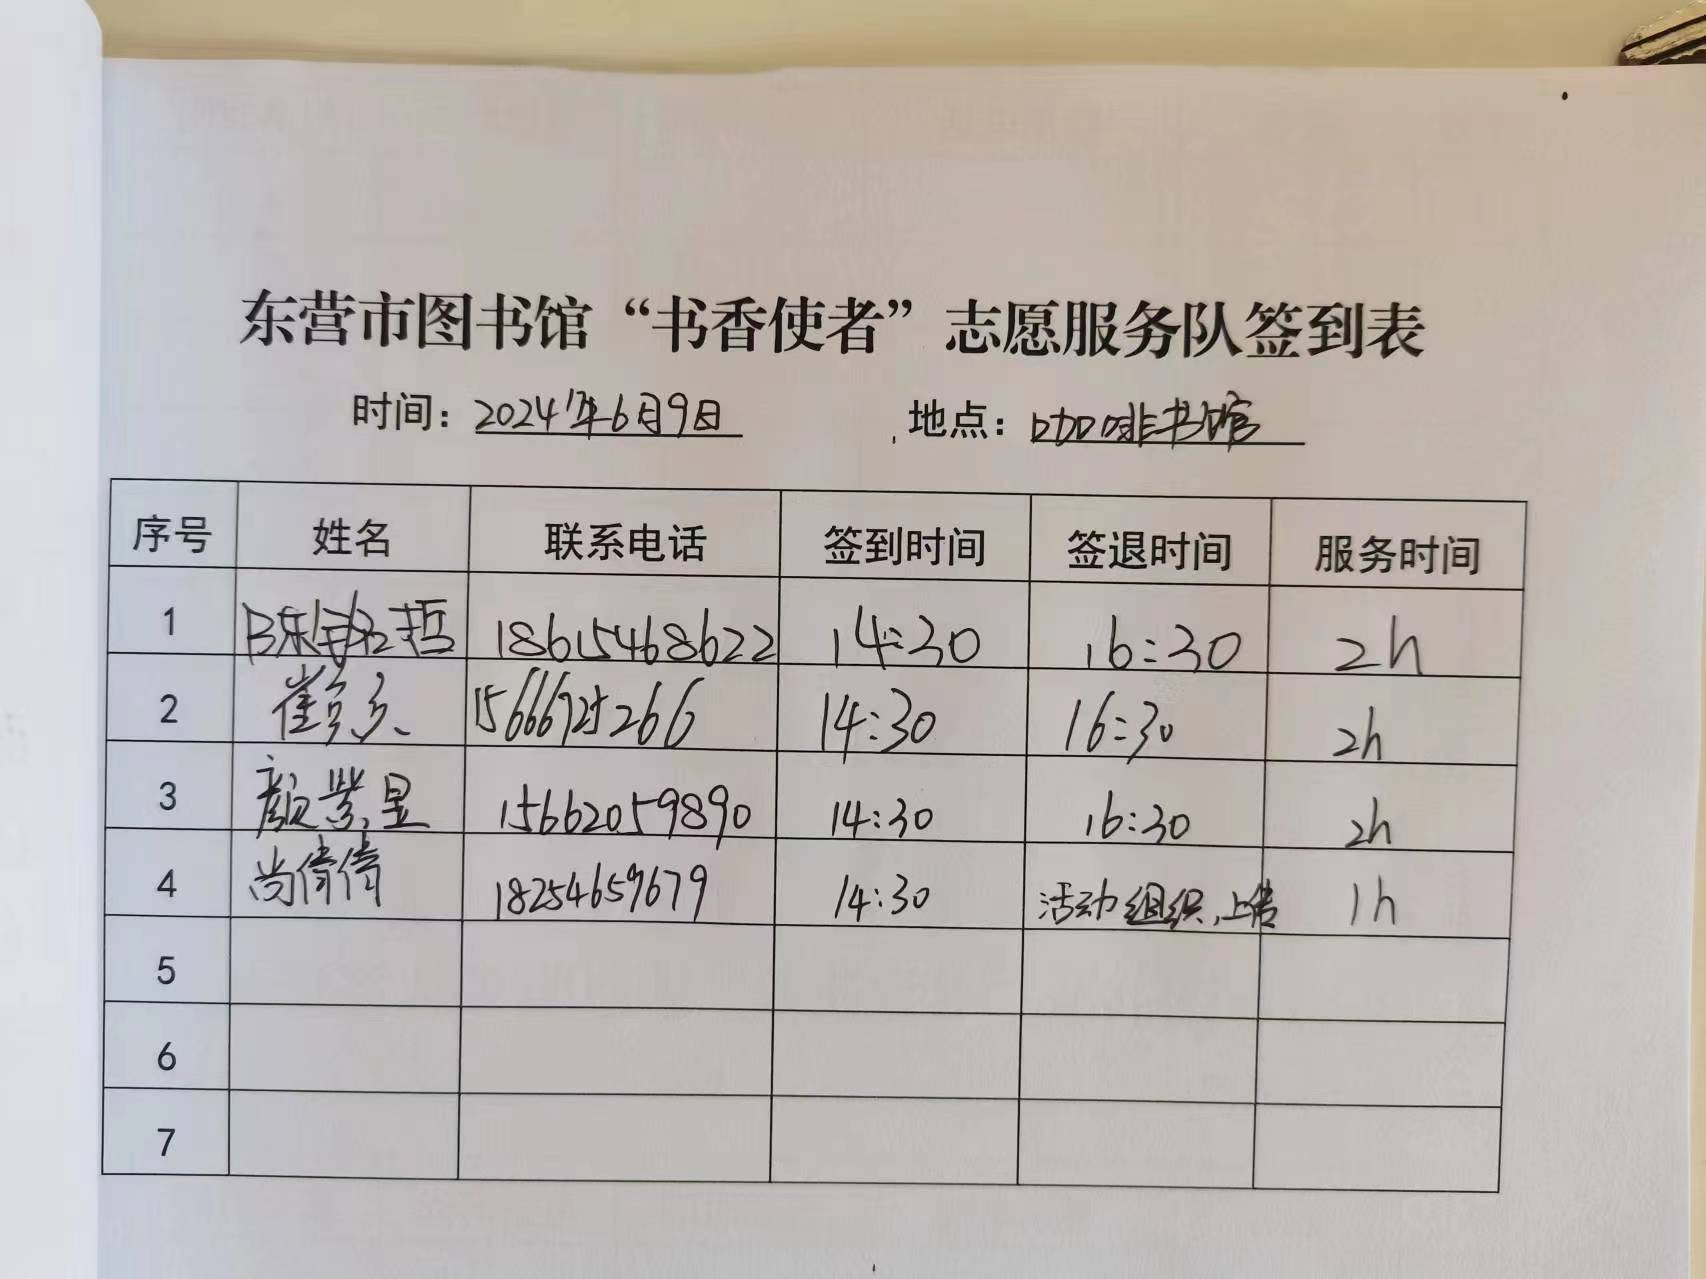 东营市图书馆“书香使者”志愿服务队签到表
时间：2024年6月9日 地点：咖啡书馆
序号 姓名 联系电话 签到时间 签退时间 服务时间
1 陈 哲 18615468622 14:30 16:30 2h
2 崔 15666725266 14:30 16:30 2h
3 颜紫昱 15662059890 14:30 16:30 2h
4 尚倩倩 18254659679 14:30 活动组织,上传 1h
5
6
7